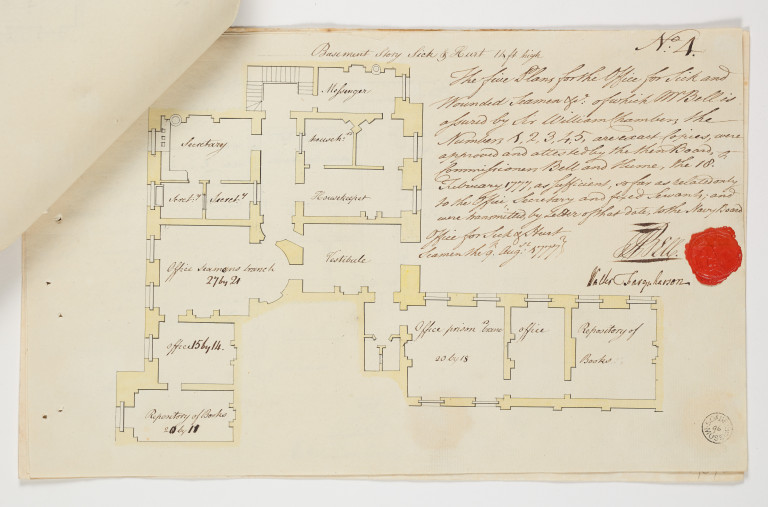 Basement Story Sick & Hurt 14 ft high
No. 4.
The five Plans for the Office for Sick and
Wounded Seamen &c. of which Mr Bell is
assured by Sir William Chambers, the
Numbers 1, 2, 3, 4, 5, are exact Copies, were
approved and attested by the then Board,
Commissioners Bell and the 18th
February 1777, as sufficient, so far as related only
to the Office, Secretary and fixed Servants; and
were transmitted, by Letter of that date, to the Navy Board
Office for Sick & Hurt
Seamen the 9th Augst 1777
Bell
Walter Farquharson
Messenger
Secretary
househ
Secret.ys Secret.y
Housekeeper
Office Seamans branch
27 by 20
Vestibule
office 15 by 14.
Repository of Books
20 by 11
Office prison Branc
20 by 18
office
Repository of
Books